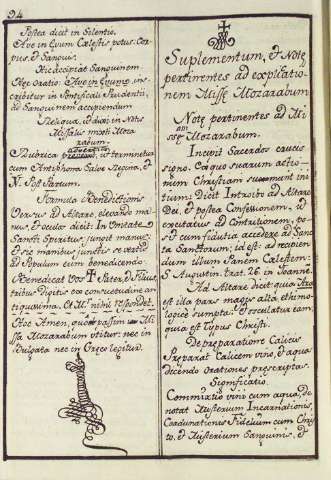 94
Postea dicit in Silentio.
Ave in Ævum Cælestis potus. Cor-
pus, et Sanguis.
Hic accipiat Sanguinem
Hæc oratio: Ave in Ævum in-
scribitur in Pontificali Prudentii,
ad Sanguinem accipiendum
Reliqua, ut dixi in Notis
Missalis mixti Moza-
rabum.
Rubrica se terminatur
cum Antiphona Salve Regina, et
V. Post Partum.
Formula Benedictionis
Versus ad Altare, elevando ma-
nus, et oculos dicit: In Unitate
Sancti Spiritus jungit manus,
et sic manibus junctis se vertit
ad Populum eum benedicendo.
Benedicat Vos ✝ Pater, et Filius,
tribus Digitis vox consuetudine an-
tiquissima. Et Mr. nihil respondet.
Hoc Amen, quo passim in Mi-
ssa Mozarabum utitur: nec in
Vulgata nec in Græco legitur.
Suplementum, et Notæ
pertinentes ad expilatio-
nem Missæ Mozarabum.
Notæ pertinentes ad Mi-
ssam Mozarabum.
Incipit Sacerdos crucis
signo. Cæpque suarum actio-
num Christiani sumunt ini-
tium: Dicit Introibo ad Altare
Dei, et postea Confessionem, ut
excitatus ad Contritionem, po-
sit cum fiducia accedere ad Sanc-
ta Sanctorum; id est: ad recipien-
dum illum Panem Cælestem:
S. Augustin. trat. 26. in Joanne.
Ad Altare dicit quia Ara
est illa pars magis alta ethimo-
logice sumpta. Osculatur eam,
quia est Typus Christi.
De preparatione Calicis
Preparat Calicem vino, et aqua
dicendo orationes prescriptas.
Significatio.
Commixtio vini cum aqua, de-
notat Mysterium Incarnationis,
Coadunationes Fidelium cum Chris-
to, et Mysterium Sanguinis, et